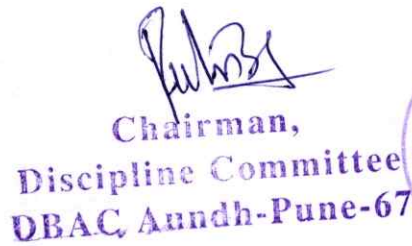 Chairman,
Discipline Committee
DBAC, Aundh-Pune-67